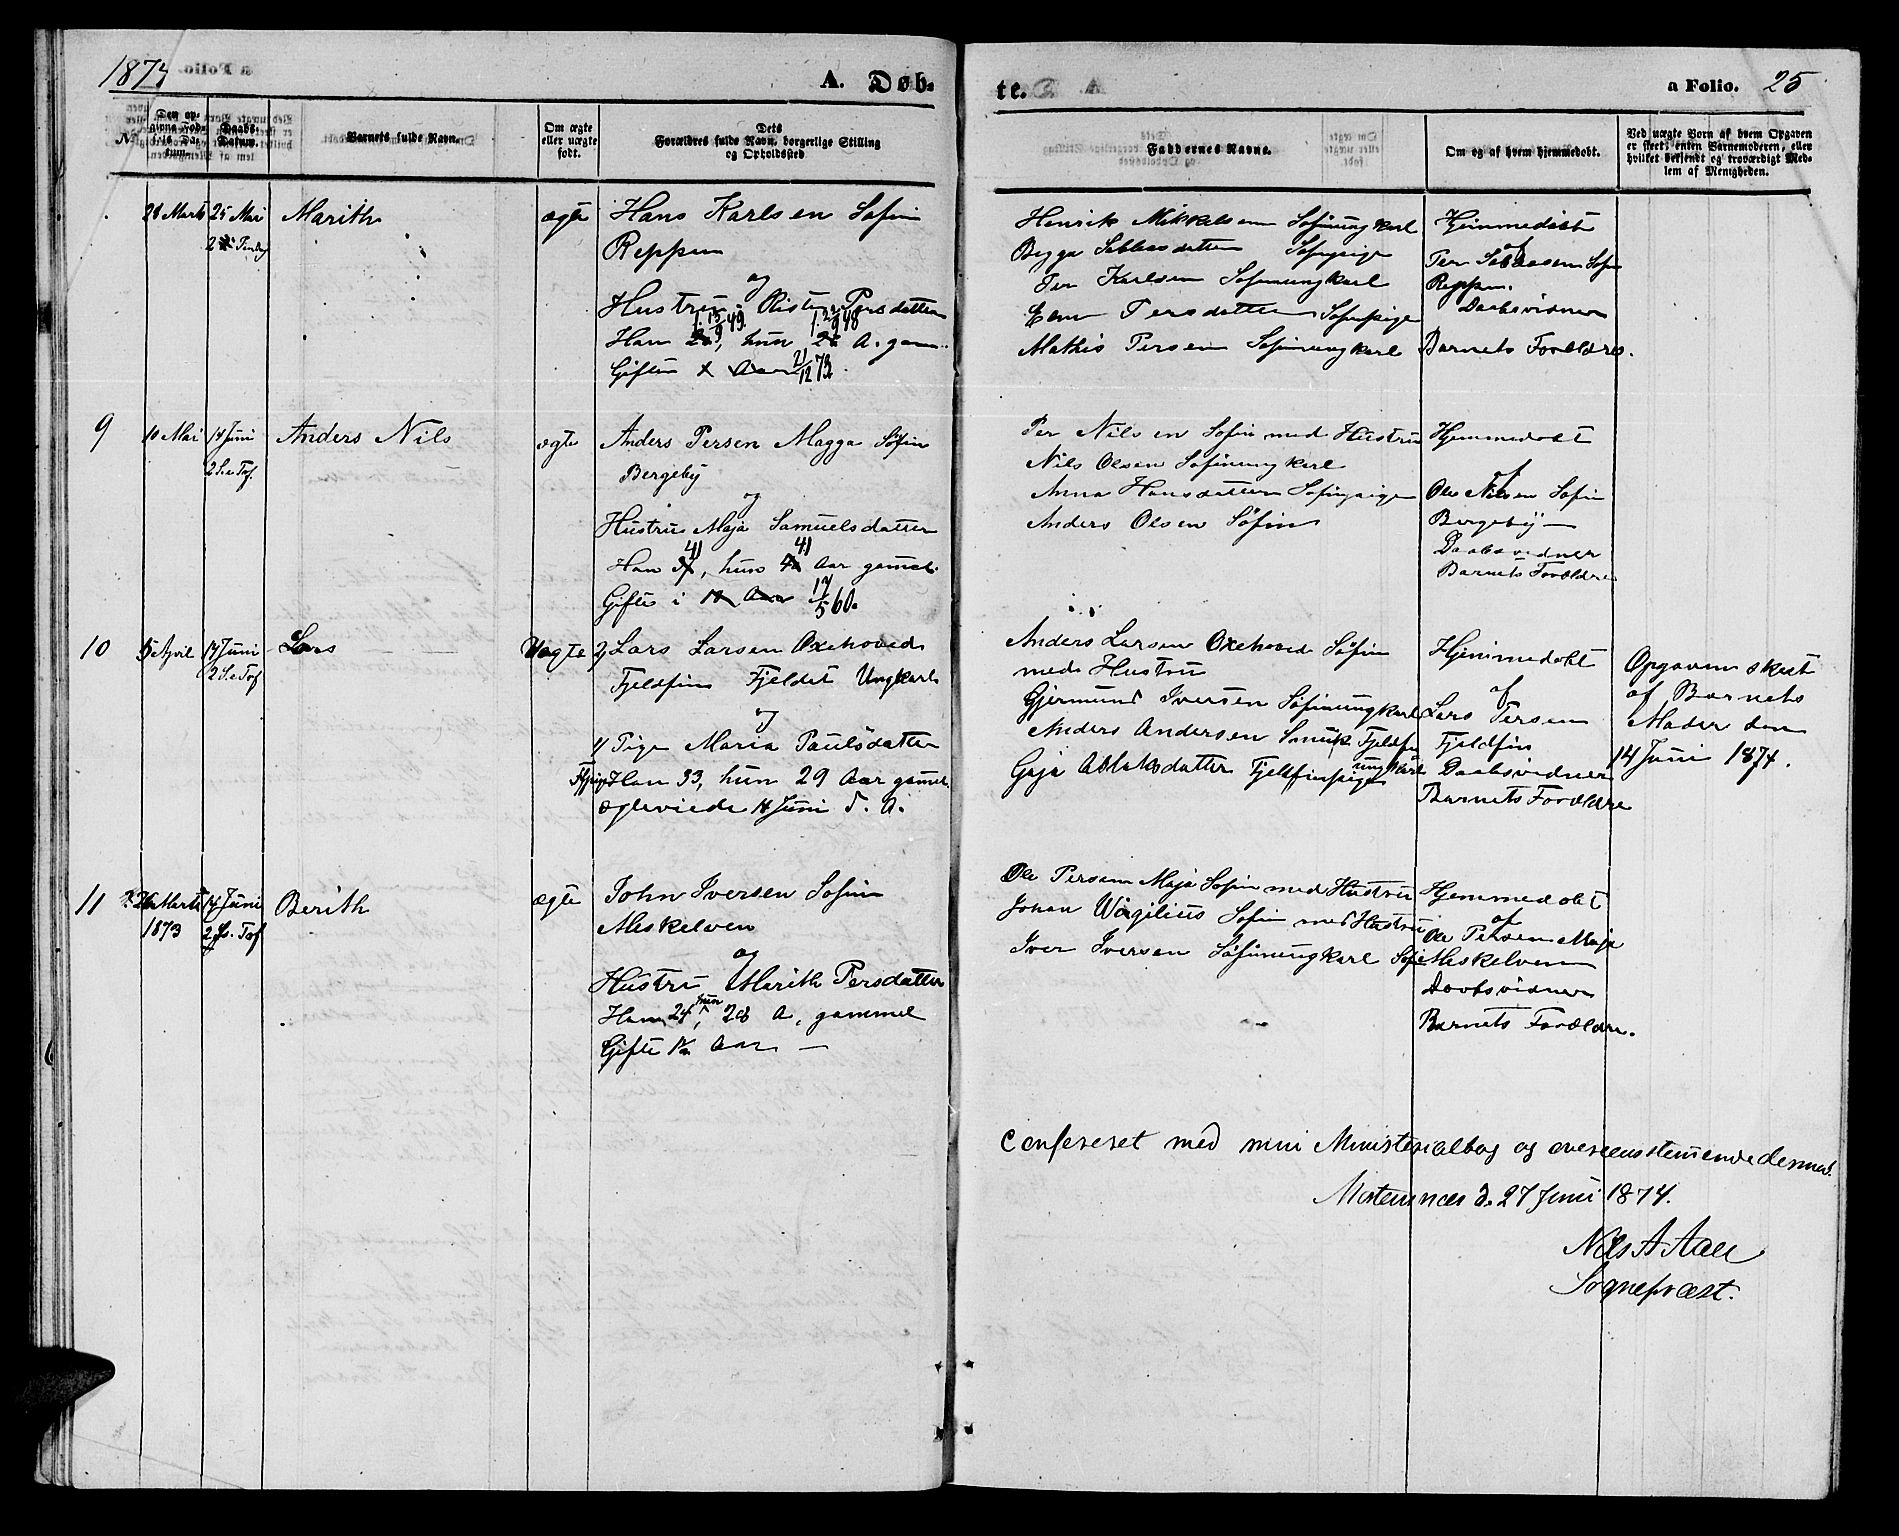 1874
A. Døb-
te.
a Folio. 25
No.
Den an-
givne Fød-
sels Da-
tum.
Daabs-
Datum.
Barnets fulde Navn.
Om ægte
eller uægte
født.
Dets
Forældres fulde Navn, borgerlige Stilling
og Opholdssted
Faddernes Navne.
Om og af hvem hjemmedøbt.
Ved uægte Børn af hvem Opgaven
er skeet; enten Barnemoderen, eller
hvilket bekjendt og troværdigt Med-
lem af Menigheden.
28 Marts
25 Mai
Marith
ægte
Hans Karlsen Søfin
Reppen
og
Hustru Persdatter
Han , hun A. gam.
Gifte 1 Aar 21/12 73.
Henrik Mikkelsen Søfinungkarl
Per Karlsen Søfinungkarl
Elen Persdatter Søfinpige
Mathis Persen Søfinungkarl
Hjemmedøbt
af
Reppen.
Daabsvidner
Barnets Forældre.
9
10 Mai
14 Juni
2 S. e Tref.
Anders Nils
ægte
Anders Persen Magga Søfin
Bergeby
og
Hustru Maja Samuelsdatter
Han 41, hun 41 Aar gamel.
Gifte i 17/5 60.
Per Nilsen Søfin med Hustru
Nils Olsen Søfinungkarl
Anna Hansdatter Søfinpige
Anders Olsen Søfin
Hjemmedøbt
af
Ole Nilsen Søfin
Bergeby
Daabsvidner
Barnets Forældre
10
5 April
14 Juni
2 S. e Tref
Lars
Uægte
2, Lars Larsen Oxehoved
Fjeldfin Fjeldet Ungkarl
og
1/ Pige Maria Paulsdatter
Han 33, hun 29 Aar gamel.
ægteviede 14 Juni d. A.
Anders Larsen Oxehoved Søfin
med Hustru
Gjermund Iversen Søfinungkarl
Anders Andersen Smuk Fjeldfin
ungkarl
Gaja Aslaksdatter Fjeldfinpige
Hjemmedøbt
af
Lars Persen
Fjeldfin
Daabsvidner
Barnets Forældre
Opgaven skeet
af Barnets
Moder den
14 Juni 1874.
11
Marts
1873
14 Juni
2 S. e. Tref
Berith
ægte
John Iversen Søfin
Meskelven
og
Hustru Marith Persdatter
Han 24, hun 28 A. gammel
Gifte Aar
Ole Persen Maja Søfin med Hustru
Johan Wirgilius Søfin med Hustru
Iver Iversen Søfinungkarl
Hjemmedøbt
af
Ole Persen Maja
Meskelven
Daabsvidner
Barnets Forældre.
Confereret med min Ministerialbog og overeensstemmende dermed.
Mortensnæs d. 27 Juni 1874.
Nils A Aall
Sognepræst.